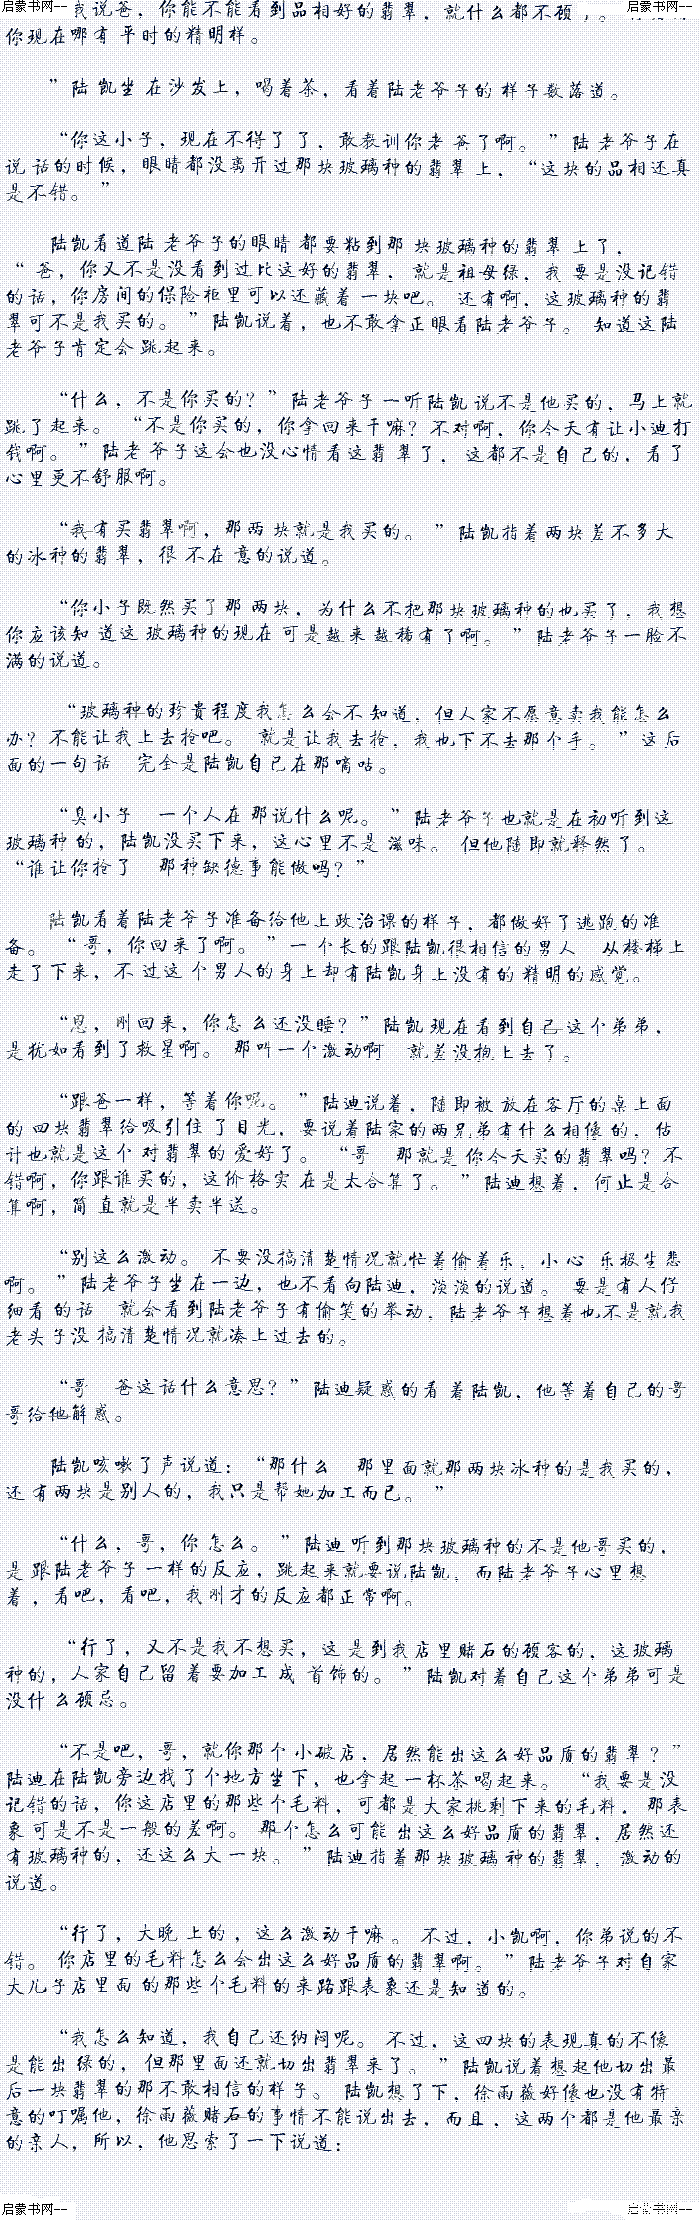 启蒙书网--
启蒙书网--
我说爸，你能不能看到品相好的翡翠，就什么都不顾了。
你现在哪有平时的精明样。
”陆凯坐在沙发上，喝着茶，看着陆老爷子的样子数落道。
“你这小子，现在不得了了，敢教训你老爸了啊。”陆老爷子在
说话的时候，眼睛都没离开过那块玻璃种的翡翠上，“这块的品相还真
是不错。”
陆凯看道陆老爷子的眼睛都要粘到那块玻璃种的翡翠上了，
“爸，你又不是没看到过比这好的翡翠，就是祖母绿，我要是没记错
的话，你房间的保险柜里可以还藏着一块吧。还有啊，这玻璃种的翡
翠可不是我买的。”陆凯说着，也不敢拿正眼看陆老爷子。知道这陆
老爷子肯定会跳起来。
“什么，不是你买的？”陆老爷子一听陆凯说不是他买的，马上就
跳了起来。“不是你买的，你拿回来干嘛？不对啊，你今天有让小迪打
钱啊。”陆老爷子这会也没心情看这翡翠了，这都不是自己的，看了
心里更不舒服啊。
“我有买翡翠啊，那两块就是我买的。”陆凯指着两块差不多大
的冰种的翡翠，很不在意的说道。
“你小子既然买了那两块，为什么不把那块玻璃种的也买了，我想
你应该知道这玻璃种的现在可是越来越稀有了啊。”陆老爷子一脸不
满的说道。
“玻璃种的珍贵程度我怎么会不知道，但人家不愿意卖我能怎么
办？不能让我上去抢吧。就是让我去抢，我也下不去那个手。”这后
面的一句话 完全是陆凯自己在那嘀咕。
“臭小子 一个人在那说什么呢。”陆老爷子也就是在初听到这
玻璃种的，陆凯没买下来，这心里不是滋味。但他随即就释然了。
“谁让你抢了 那种缺德事能做吗？”
陆凯看着陆老爷子准备给他上政治课的样子，都做好了逃跑的准
备。“哥，你回来了啊。”一个长的跟陆凯很相信的男人 从楼梯上
走了下来，不过这个男人的身上却有陆凯身上没有的精明的感觉。
“恩，刚回来，你怎么还没睡？”陆凯现在看到自己这个弟弟，
是犹如看到了救星啊。那叫一个激动啊 就差没抱上去了。
“跟爸一样，等着你呢。”陆迪说着，随即被放在客厅的桌上面
的四块翡翠给吸引住了目光，要说着陆家的两兄弟有什么相像的，估
计也就是这个对翡翠的爱好了。“哥 那就是你今天买的翡翠吗？不
错啊，你跟谁买的，这价格实在是太合算了。”陆迪想着，何止是合
算啊，简直就是半卖半送。
“别这么激动。不要没搞清楚情况就忙着偷着乐，小心 乐极生悲
啊。”陆老爷子坐在一边，也不看向陆迪，淡淡的说道。要是有人仔
细看的话 就会看到陆老爷子有偷笑的举动，陆老爷子想着也不是就我
老头子没搞清楚情况就凑上过去的。
“哥 爸这话什么意思？”陆迪疑惑的看着陆凯，他等着自己的哥
哥给他解惑。
陆凯咳嗽了声说道：“那什么 那里面就那两块冰种的是我买的，
还有两块是别人的，我只是帮她加工而已。”
“什么，哥，你怎么。”陆迪听到那块玻璃种的不是他哥买的，
是跟陆老爷子一样的反应，跳起来就要说陆凯，而陆老爷子心里想
着，看吧，看吧，我刚才的反应都正常啊。
“行了，又不是我不想买，这是到我店里赌石的顾客的，这玻璃
种的，人家自己留着要加工成首饰的。”陆凯对着自己这个弟弟可是
没什么顾忌。
“不是吧，哥，就你那个小破店，居然能出这么好品质的翡翠？”
陆迪在陆凯旁边找了个地方坐下，也拿起一杯茶喝起来。“我要是没
记错的话，你这店里的那些个毛料，可都是大家挑剩下来的毛料，那表
象可是不是一般的差啊。那个怎么可能出这么好品质的翡翠，居然还
有玻璃种的，还这么大一块。”陆迪指着那块玻璃种的翡翠，激动的
说道。
“行了，大晚上的，这么激动干嘛。不过，小凯啊，你弟说的不
错。你店里的毛料怎么会出这么好品质的翡翠啊。”陆老爷子对自家
大儿子店里面的那些个毛料的来路跟表象还是知道的。
“我怎么知道，我自己还纳闷呢。不过，这四块的表现真的不像
是能出绿的，但那里面还就切出翡翠来了。”陆凯说着想起他切出最
后一块翡翠的那不敢相信的样子。陆凯想了下，徐雨薇好像也没有特
意的叮嘱他，徐雨薇赌石的事情不能说出去，而且，这两个都是他最亲
的亲人，所以，他思索了一下说道：
启蒙书网--
启蒙书网--